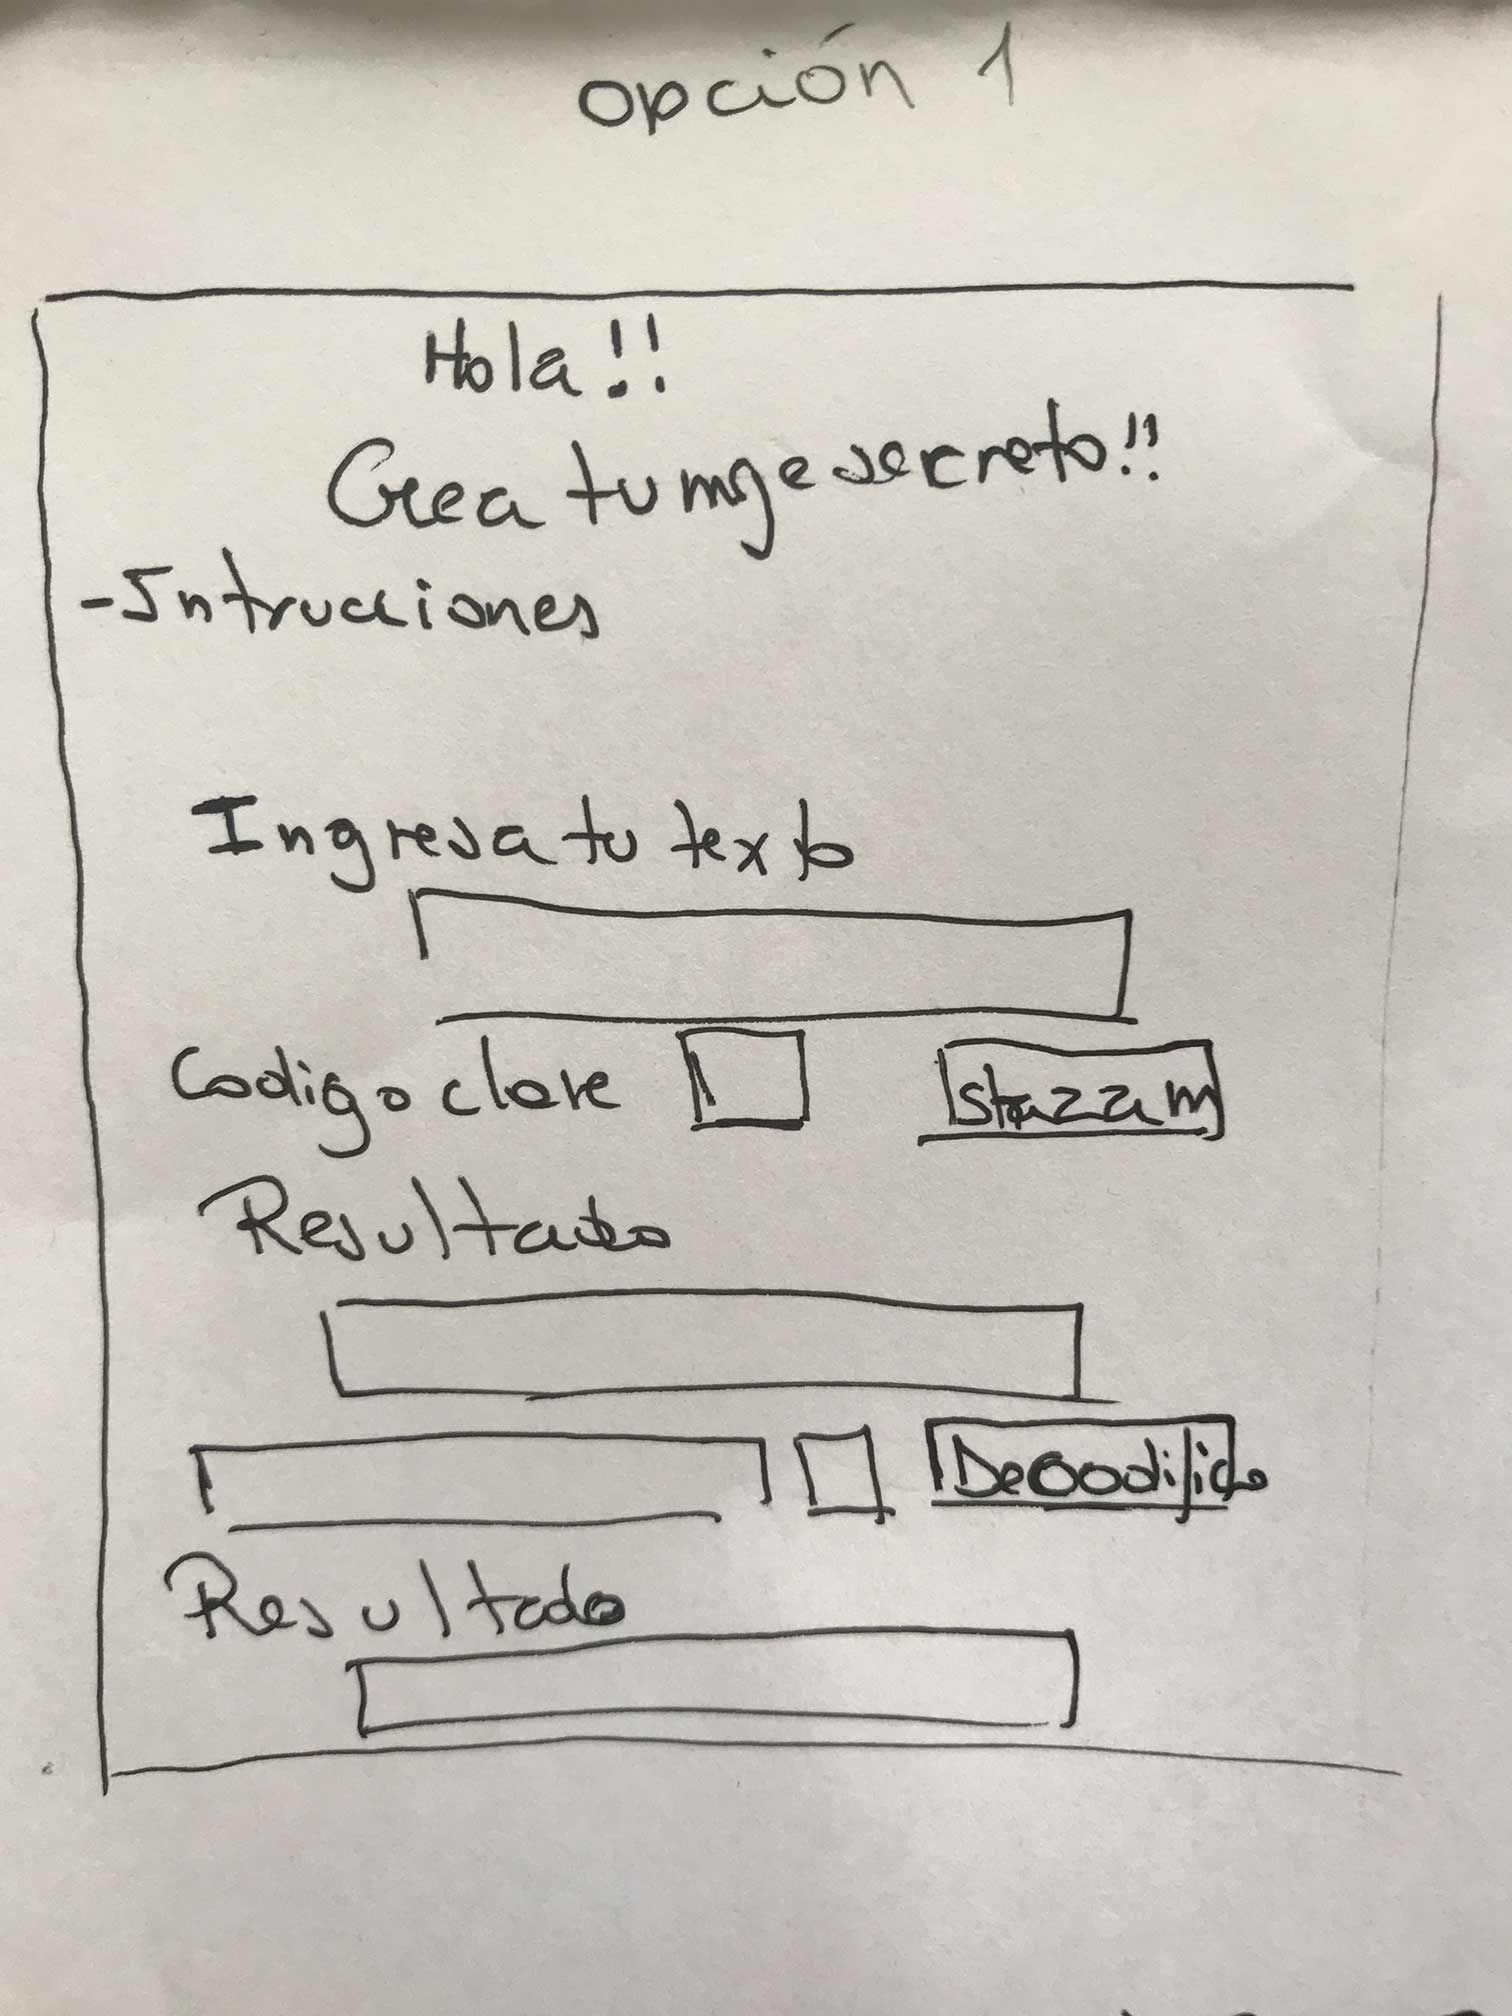 opción 1
Hola!!
Crea tu mge secreto!!
-Intrucciones
Ingresa tu texto
Codigo clave
Resultado
Decodifido
Resultado